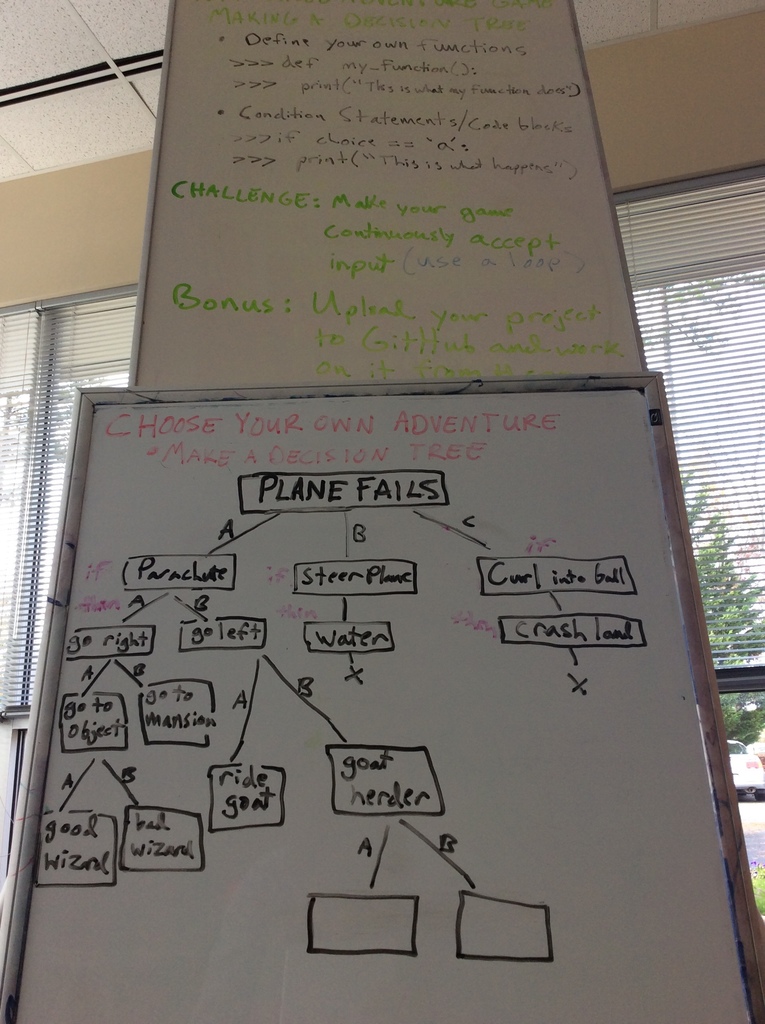 ADVENTURE GAME
MAKING A DECISION TREE
• Define your own functions
>>> def my_function():
>>> print("This is what my function does")
• Condition Statements/Code blocks
>>> if choice == 'a':
>>> print("This is what happens")
CHALLENGE: Make your game
continuously accept
input (use a loop)
Bonus: Upload your project
to GitHub and work
on it from
CHOOSE YOUR OWN ADVENTURE
• MAKE A DECISION TREE
PLANE FAILS
A B C
if
if Parachute if Steer Plane Curl into ball
then A B then
go right go left water then crash land
A B X X
go to object go to mansion A B
ride goat goat herder
A B
good wizard bad wizard A B